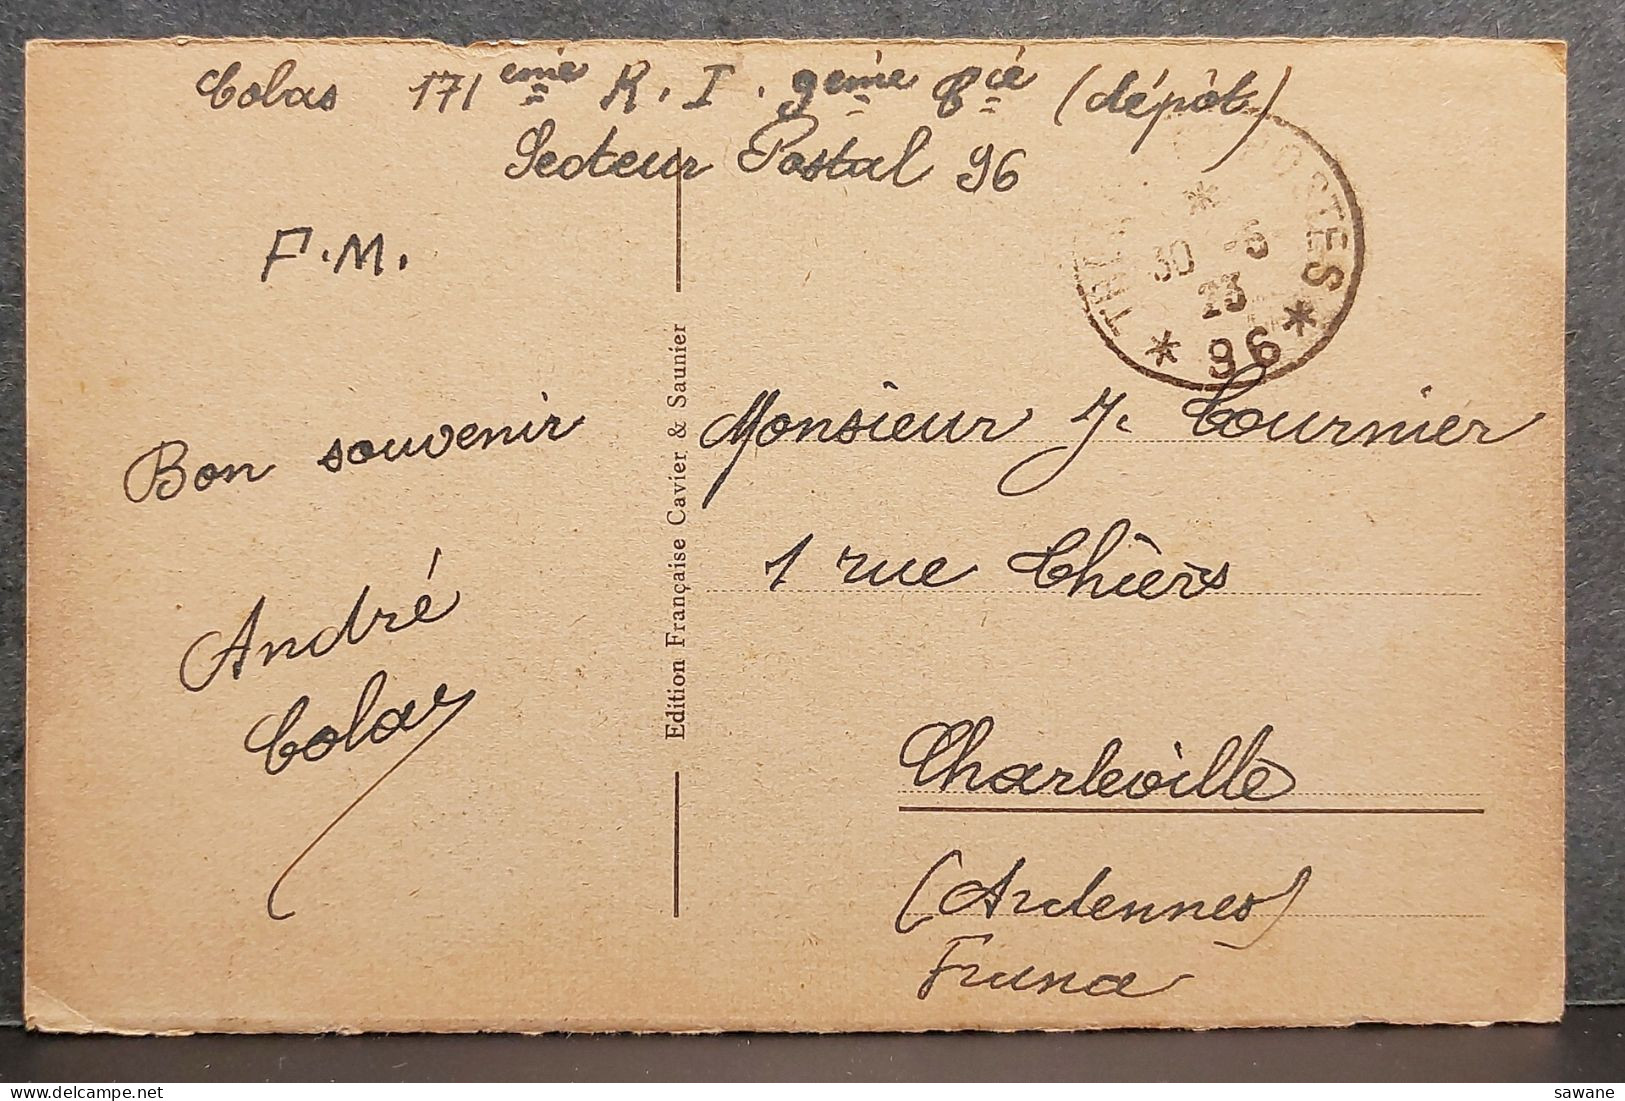 Colas 171 eme R. I. 9eme Cie (dépôt)
Secteur Postal 96
F.M.
Bon souvenir
André
Colas
Edition Française Cavier & Saunier
POSTES
30 -6
23
* 96 *
Monsieur J. Tournier
1 rue Thièrs
Charleville
(Ardennes)
France
sawane